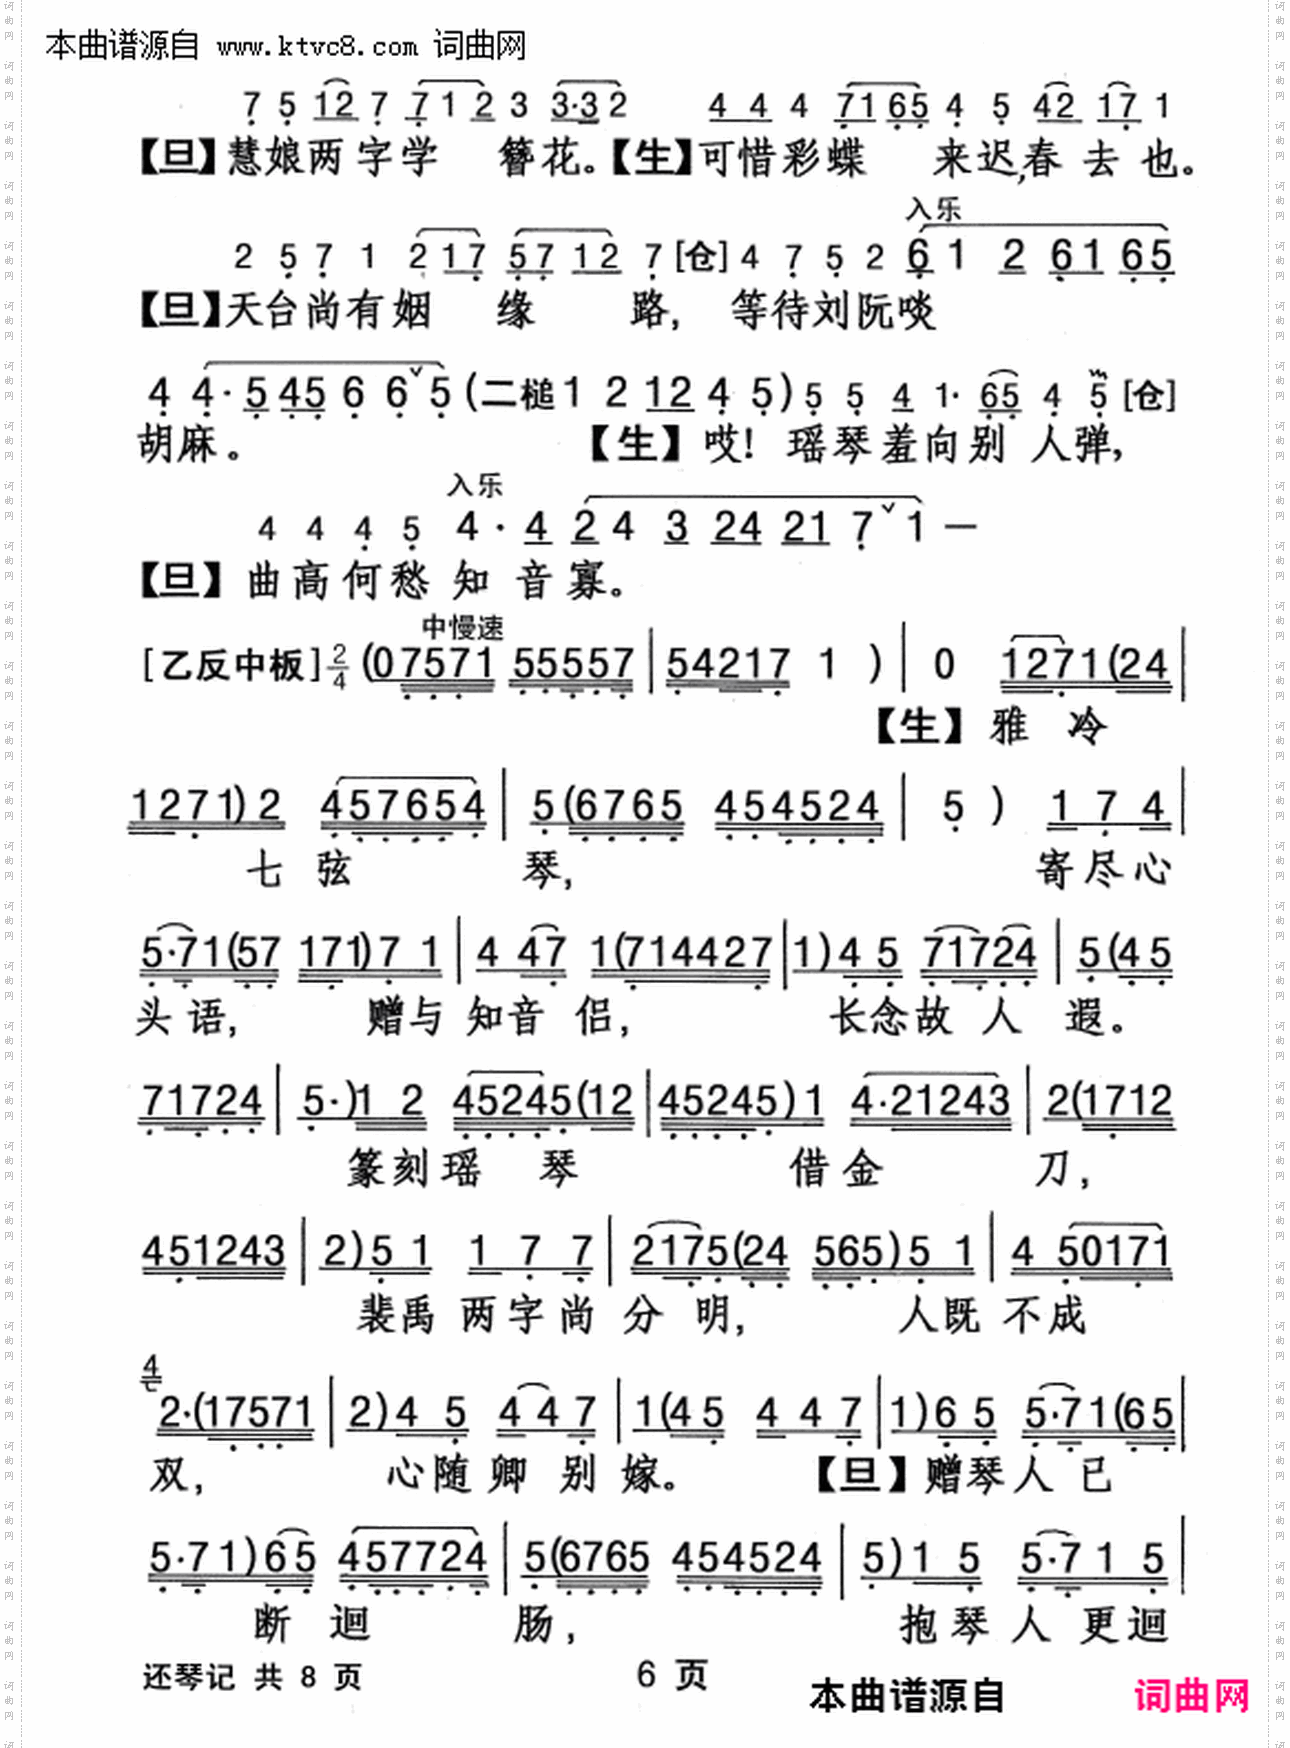 本曲谱源自 www.ktvc8.com 词曲网
7 5 12 7 7 1 2 3 3·3 2 4 4 4 71 65 4 5 42 17 1
【旦】慧娘两字学 簪花。【生】可惜彩蝶 来迟,春去也。
入乐
2 5 7 1 2 17 57 12 7 [仓] 4 7 5 2 6 1 2 61 65
【旦】天台尚有姻 缘 路, 等待刘阮啖
4 4· 5 45 6 6 ˇ 5 (二槌 1 2 12 4 5) 5 5 4 1· 65 4 5 [仓]
胡麻。 【生】哎! 瑶琴羞向别 人弹,
入乐
4 4 4 5 4· 4 2 4 3 24 21 7 ˇ 1 —
【旦】曲高何愁知 音寡。
中慢速
[乙反中板] 2/4 (07571 55557 | 54217 1 ) | 0 1271(24 |
【生】雅 冷
1271)2 457654 | 5(6765 454524 | 5 ) 1 7 4 |
七弦 琴, 寄尽心
5·71(57 171)7 1 | 4 47 1(714427 | 1)45 71724 | 5(45
头语, 赠与 知音 侣, 长念故 人 遐。
71724 | 5·)1 2 45245(12 | 45245)1 4·21243 | 2(1712
篆刻瑶 琴 借金 刀,
451243 | 2)51 1 7 7 | 2175(24 565)5 1 | 4 50171
裴禹 两字尚 分 明, 人既 不成
4
2·(17571 | 2)4 5 4 4 7 | 1(45 4 4 7 | 1)65 5·71(65 |
双, 心随卿 别 嫁。 【旦】赠琴人已
5·71)65 457724 | 5(6765 454524 | 5)1 5 5·7 1 5 |
断 迴 肠, 抱琴人更迴
还琴记 共 8 页 6 页
本曲谱源自 词曲网